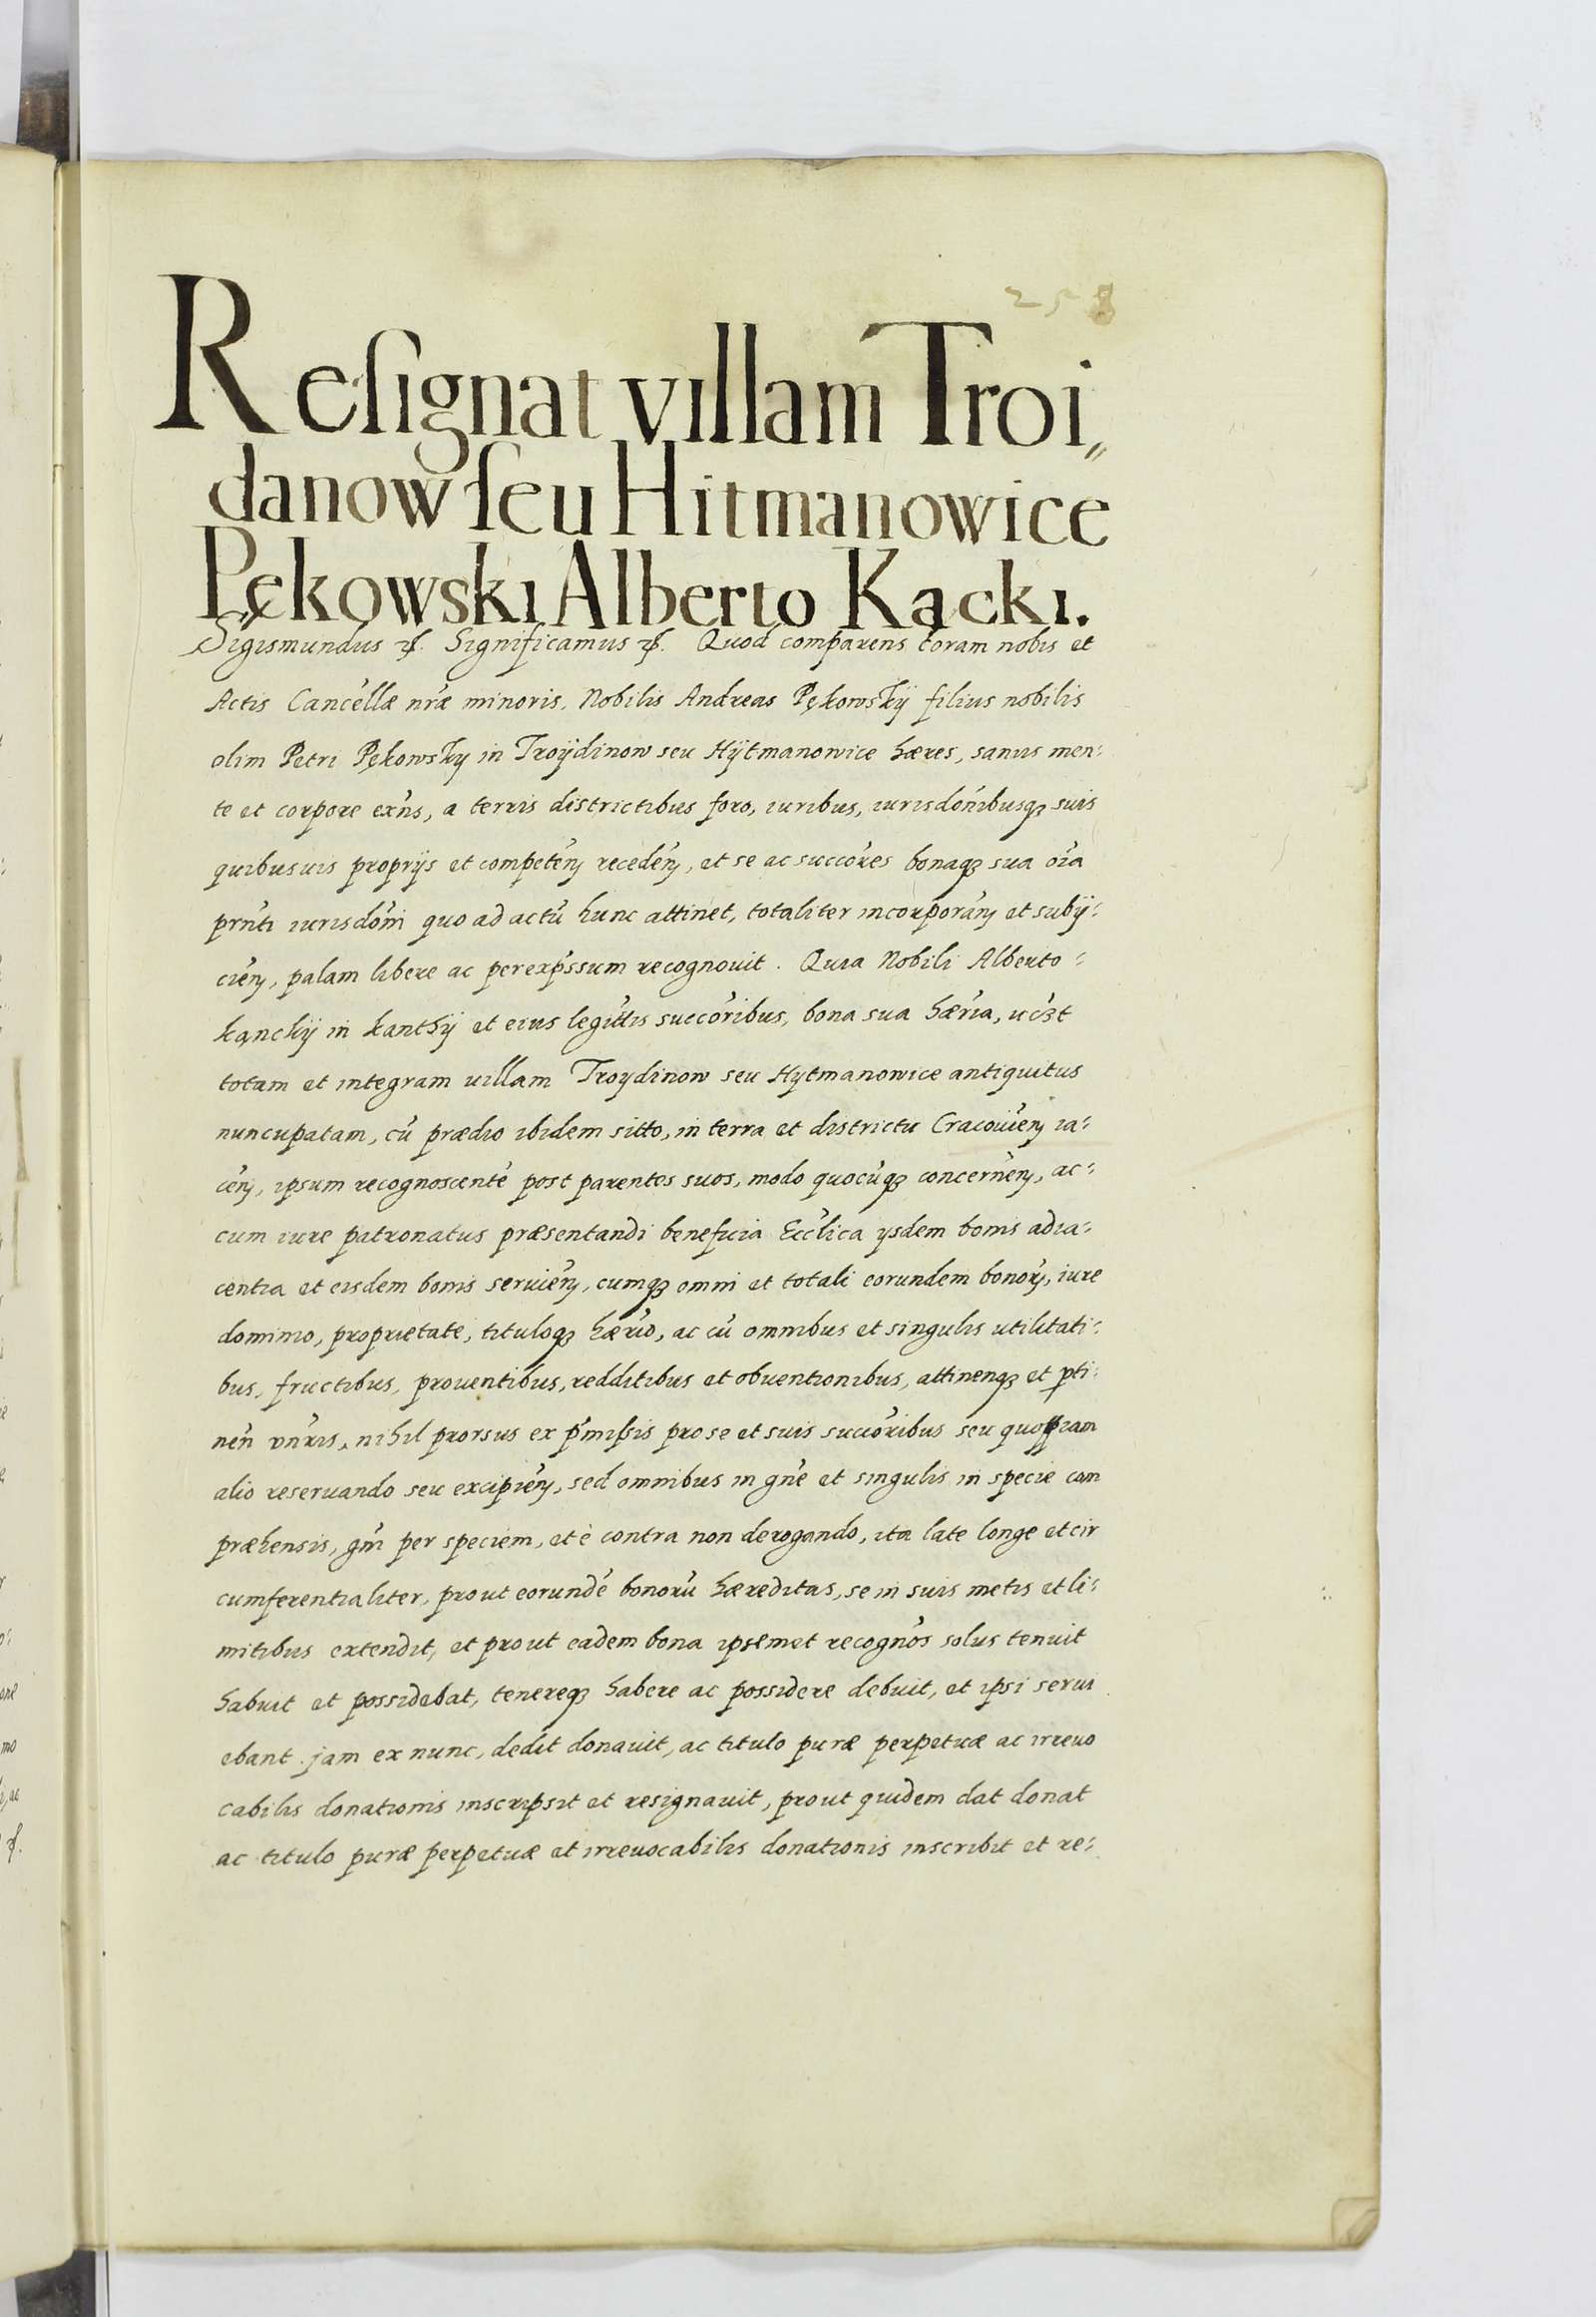 258
Resignat villam Troi„
danow seu Hitmanowice
Pękowski Alberto Kącki.
Sigismundus etc. Significamus etc. Quod comparens coram nobis et
Actis Cancellæ nræ minoris, Nobilis Andreas Pękowskÿ filius nobilis
olim Petri Pękowsky in Troÿdinow seu Hÿtmanowice hæres, sanus men:
te et corpore exns, a terris districtibus foro, iuribus, iurisdonibusqꝫ suis
quibusuis proprijs et competen̄ receden̄, et se ac succores bonaqꝫ sua oīa
prnti iurisdoni quo ad actū hunc attinet, totaliter incorporan̄ et subÿ:
cien̄, palam libere ac per exp̄ssum recognouit. Quia Nobili Alberto:
kąnckÿ in kanthÿ et eius legittis succoribus, bona sua hæria, uczt
totam et integram uillam Troydinow seu Hytmanowice antiquitus
nuncupatam, cū prædio ibidem sitto, in terra et districtu Cracouien̄ ia:
cen̄, ipsum recognoscentē post parentes suos, modo quocūqꝫ concernen̄, ac:
cum iure patronatus præsentandi beneficia Ecclica ysdem bonis adia:
centia et eisdem bonis seruien̄, cumqꝫ omni et totali eorundem bonorꝫ, iure
dominio, proprietate, tituloqꝫ hærio, ac cū omnibus et singulis utilitati:
bus, fructibus, prouentibus, redditibus et obuentionibus, attinenqꝫ et ꝑti:
nen̄ vnīris, nihil prorsus ex p̄missis pro se et suis succoribus seu quopiam
alio reseruando seu excipien̄, sed omnibus in gn̄e et singulis in specie com
præhensis, gn̄i per speciem, et è contra non derogando, ita late longe et cir
cumferentialiter, prout eorundē bonorū hæreditas, se in suis metis et li:
mitibus extendit, et prout eadem bona ipsemet recognos solus tenuit
habuit et possidebat, tenereqꝫ habere ac possidere debuit, et ipsi serui
ebant. jam ex nunc, dedit donauit, ac titulo puræ perpetuæ ac irreuo
cabilis donationis inscripsit et resignauit, prout quidem dat donat
ac titulo puræ perpetuæ et irreuocabilis donationis inscribit et re: